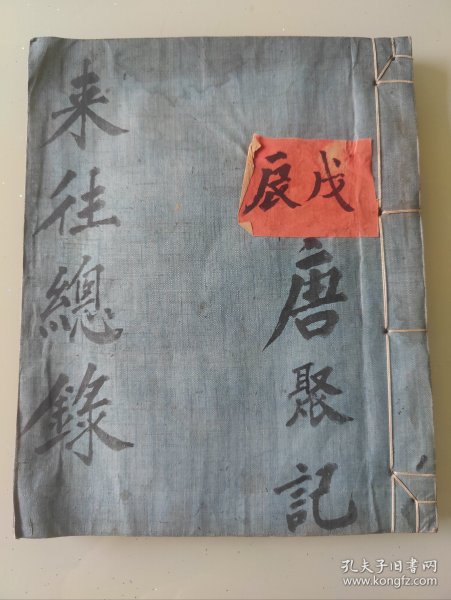 戊辰
唐聚記
来往總錄
孔夫子旧书网
www.kongfz.com